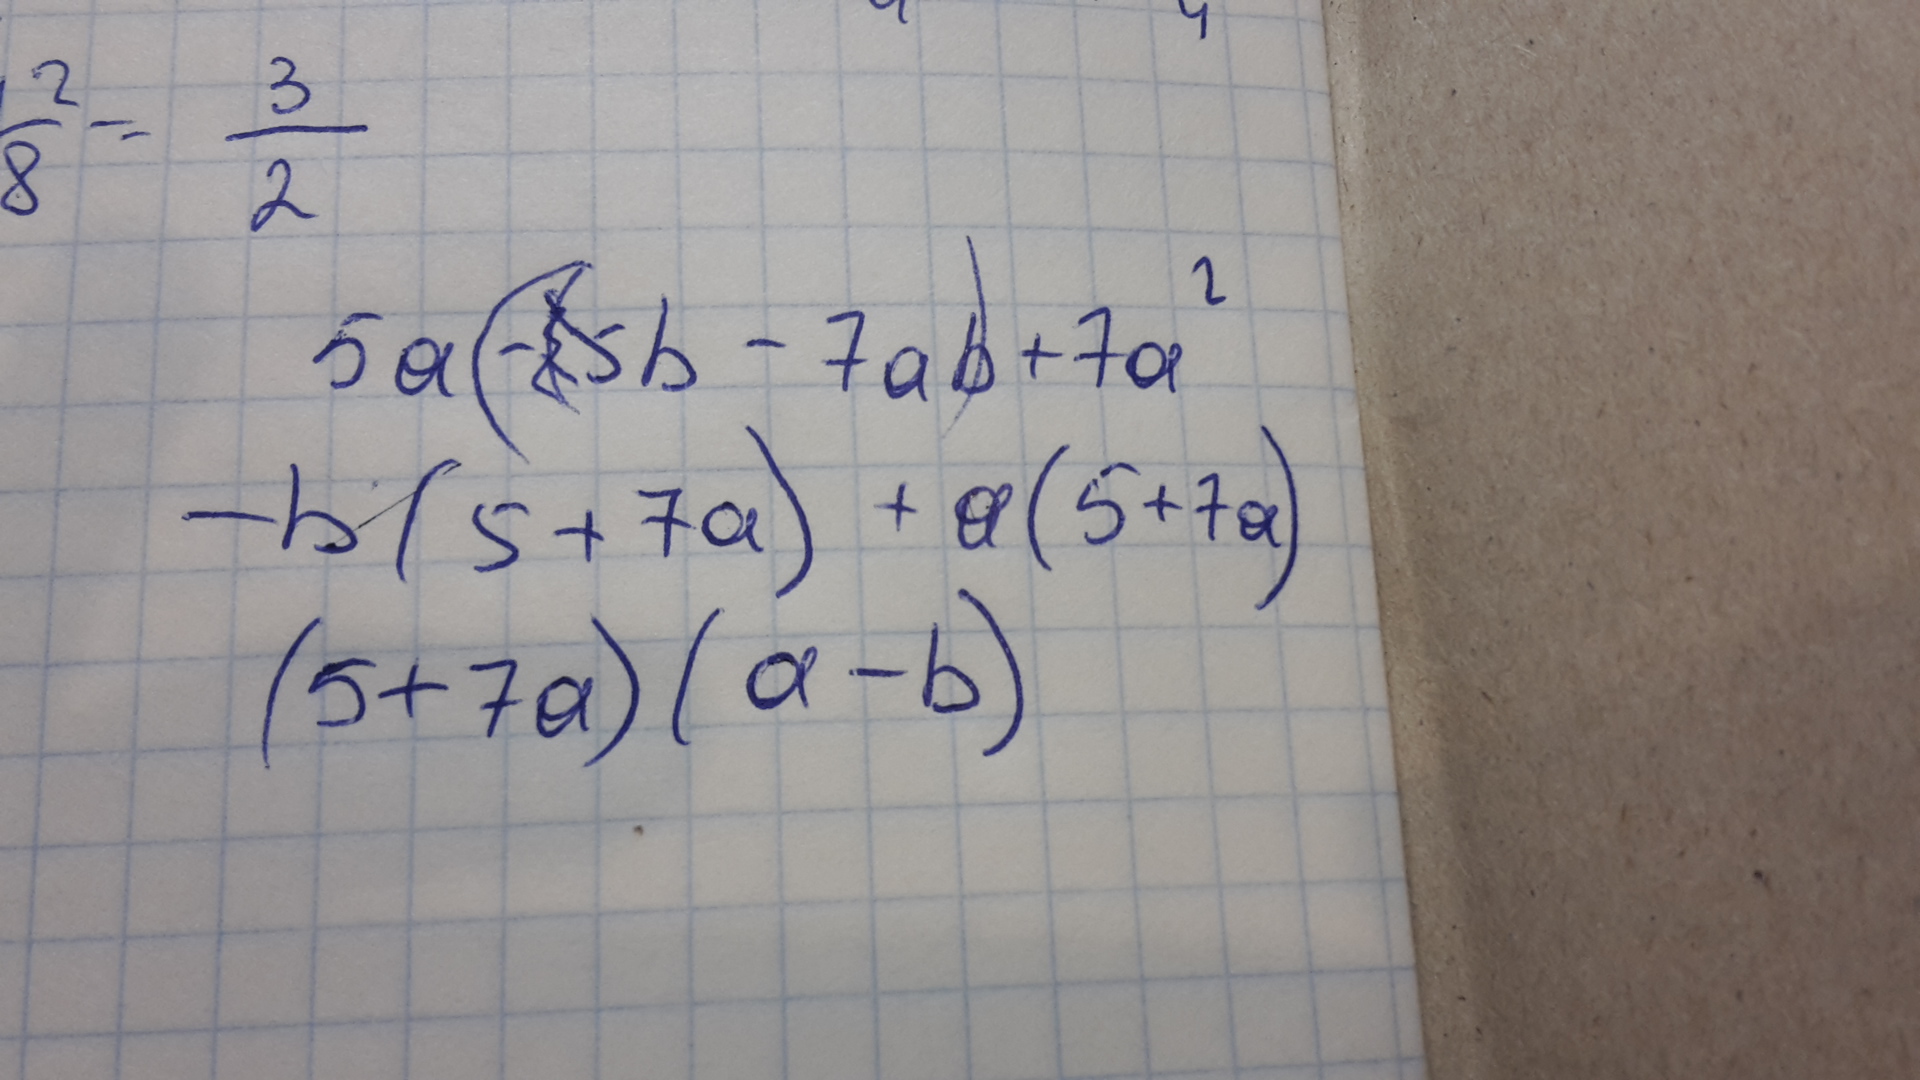 12/8 = 3/2
5a(-5b - 7ab) + 7a²
-b(5 + 7a) + a(5 + 7a)
(5 + 7a)(a - b)